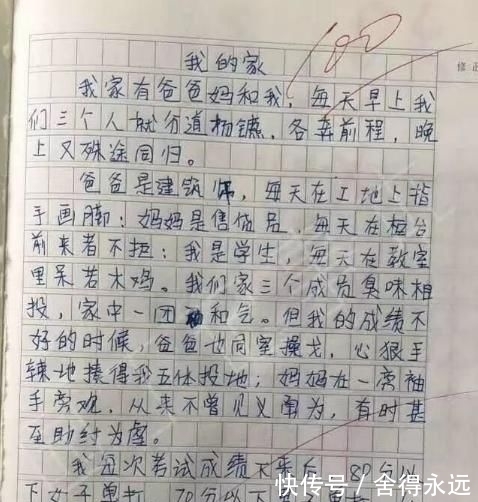 100
修正
我的家
我家有爸爸妈和我，每天早上我
们三个人就分道杨镳，各奔前程，晚
上又殊途同归。
爸爸是建筑师，每天在工地上指
手画脚；妈妈是售货员，每天在柜台
前来者不拒；我是学生，每天在教室
里呆若木鸡。我们家三个成员臭味相
投，家中一团和气。但我的成绩不
好的时候，爸爸也同室操戈，心狠手
辣地揍得我五体投地；妈妈在一旁袖
手旁观，从来不曾见义勇为，有时甚
至助纣为虐。
我每次考试成绩下来后，80分以
下女子单打，70分以下
快传号/舍得永远